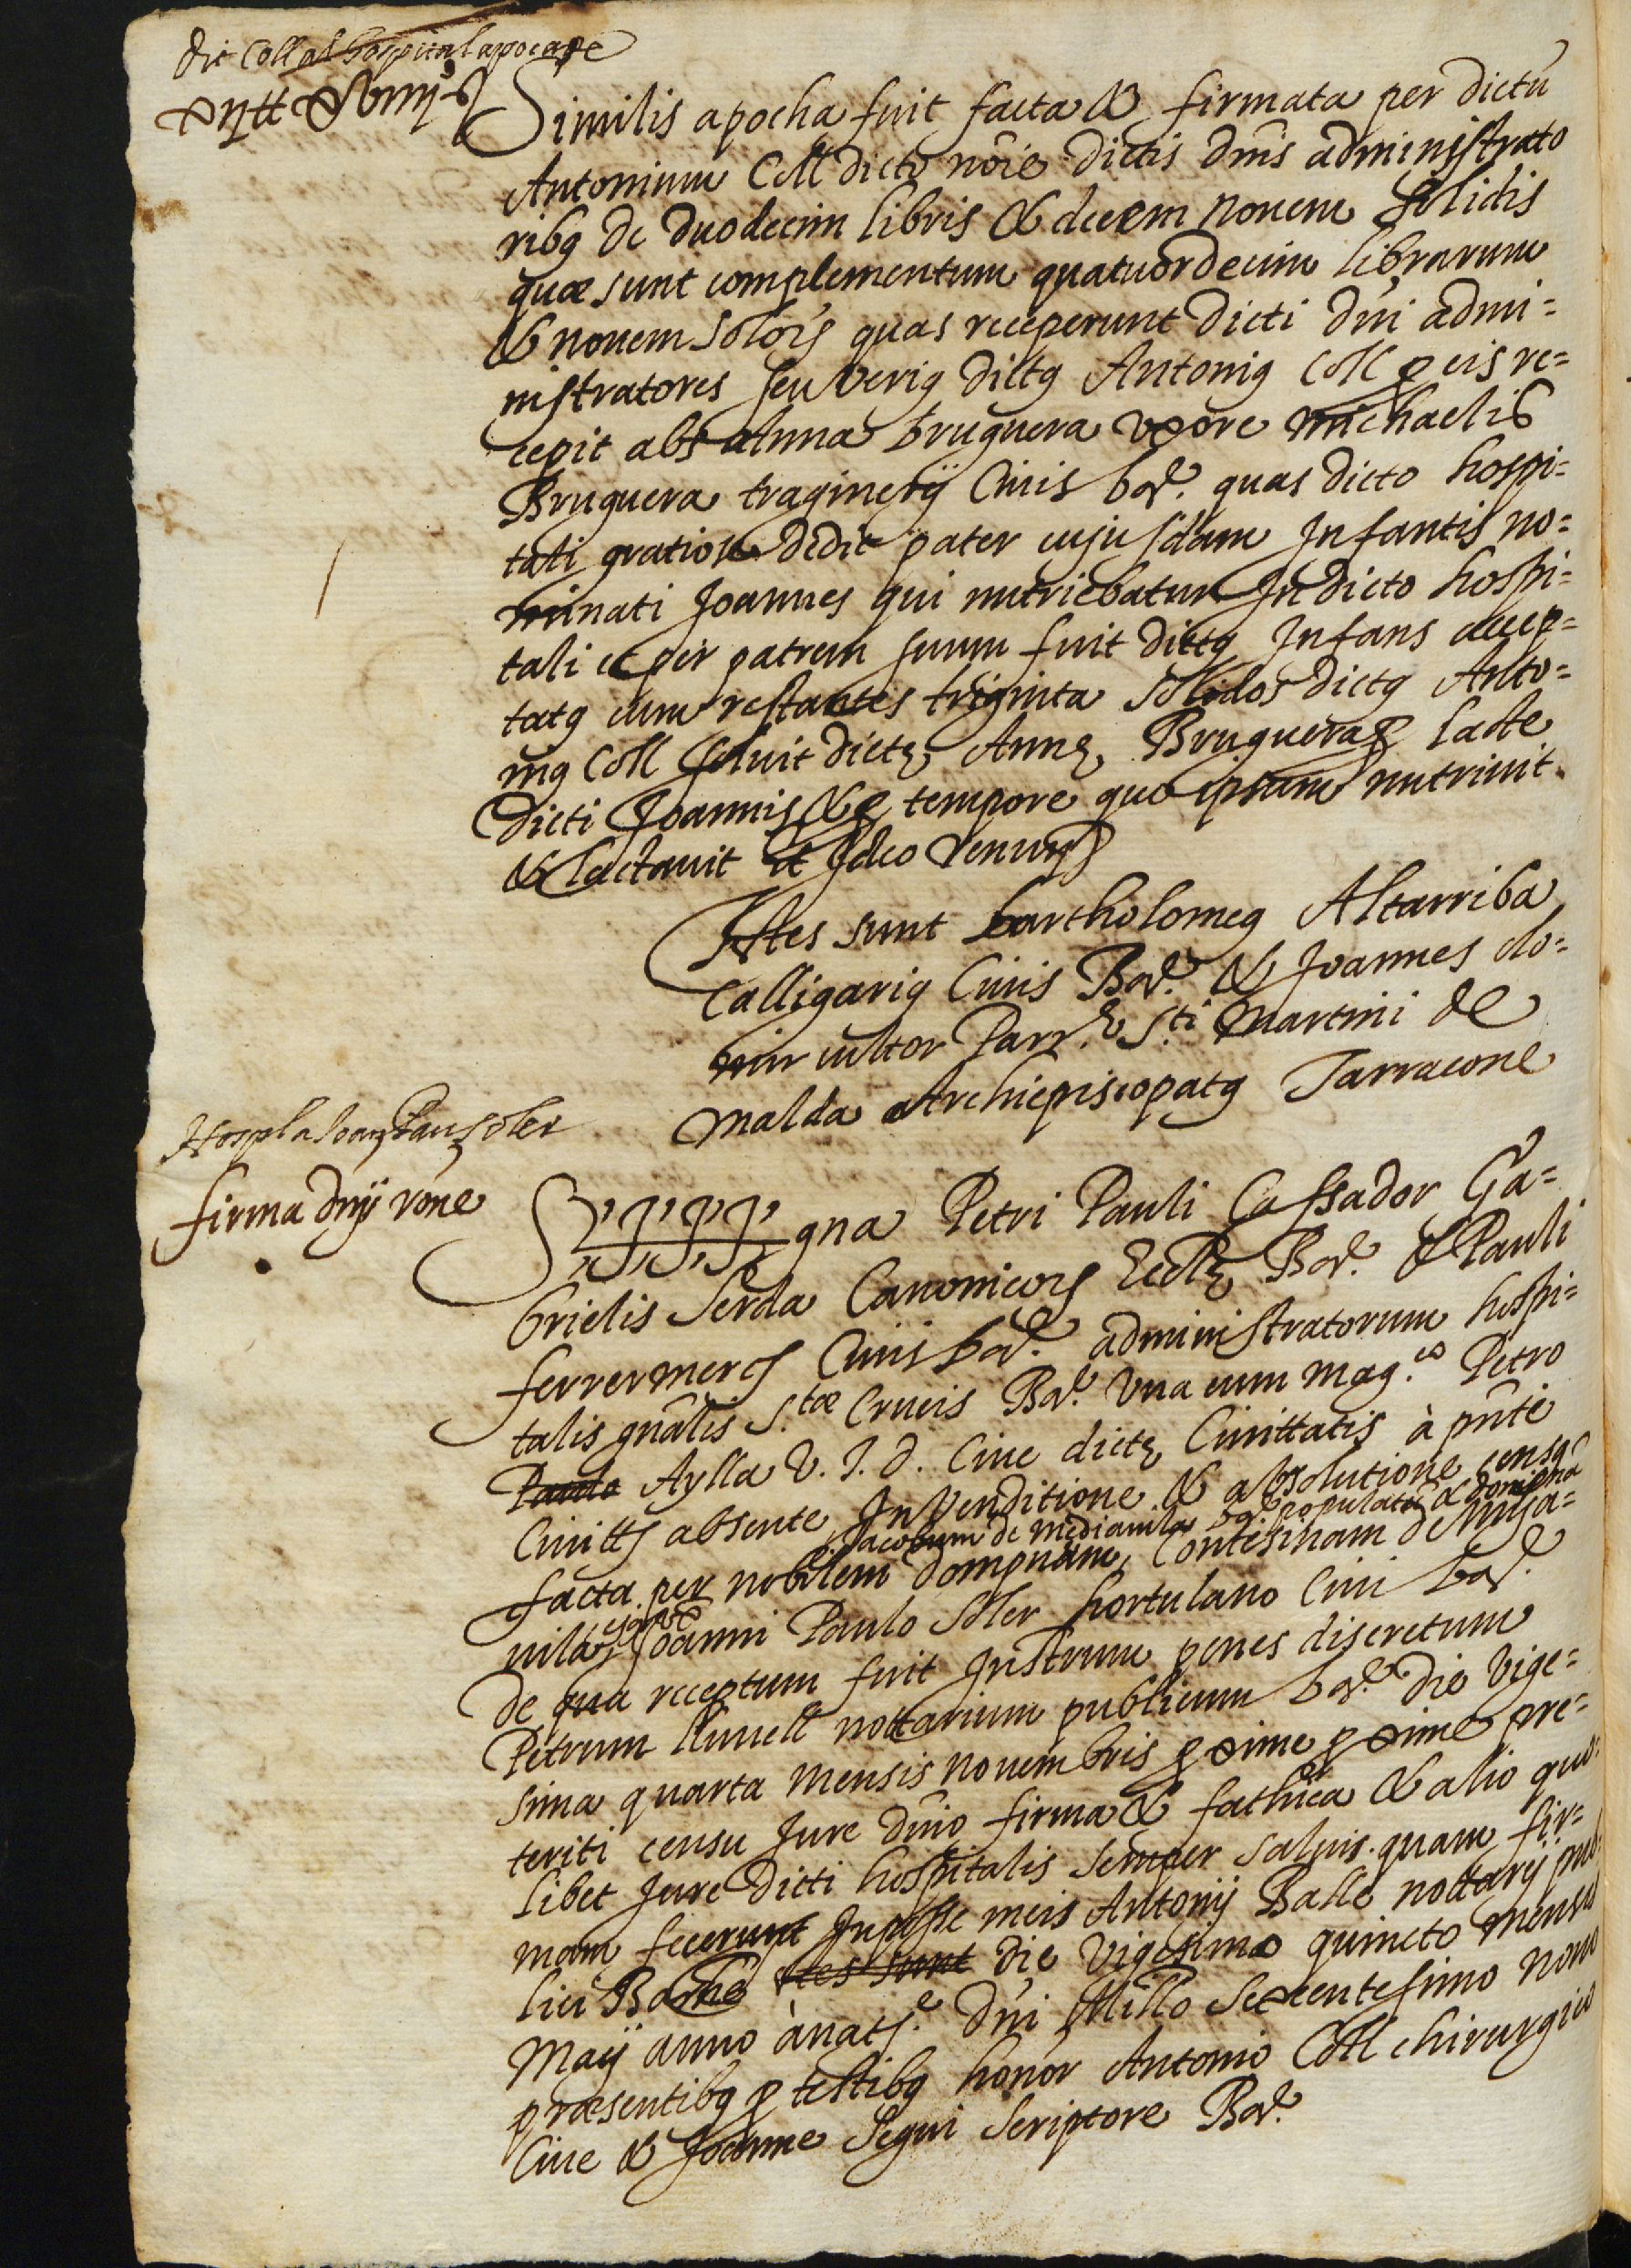 dit Coll al hospital apoca de
Similis apocha fuit facta & firmata per dictū
Antonium Coll dicto nōie dictis dn̄is administrato
ribq de duodecim libris & decem novem solidis
quæ sunt complementum quatuordecim librarum
& novem solor̃ quas receperunt dicti dn̄i admi=
nistratores seu veriq dictq Antoniq Coll p eis re=
cepit abs Anna Bruguera uxore Michaelis
Bruguera traginerij Civis bar̃. quas dicto hospi=
tali gratiose dedit pater cujusdam Infantis no=
minati Joannes qui nutriebatur In dicto hospi=
tali et per patrem suum fuit dictq Infans accep=
tatq cum restantes triginta solidos dictq Anto=
niq Coll solvit dictę Annę Bruguera p lacte
dicti Joannis & p tempore quo ipsum nutrivit
& lactavit et Ideo Renun
Testes sunt bartholomeq Altarriba
Calligariq Civis Bar̃. & Joannes do=
mir cultor Parr.ę S.ti Martini de
Malda Archiepiscopatq Tarracone
Hospl a Joan Pau soler
firma dn̄ij rōne
Sgna Petri Pauli Cassador Ga=
brielis Serda Canonicor̃ Ecclę Bar̃. & Pauli
ferrer merc̃ Civis bar̃. administratorum hospi=
talis gn̄alis S.tæ Crucis Bar̃. Una cum mag.co Petro
Paulo Aylla U. J. d. Cive dictę Civittatis à pn̄te
Civitt̃ absente In Venditione & absolutione censq
Jacobum de Mediavila bar̃. populatū & domicenā
facta per nobilem Dompnam, Contesinam de Mija=
vila, Joanni Paulo Soler hortulano Civi bar̃.
de qua receptum fuit Instrum penes discretum
Petrum llunell nottarium publicum bar̃. die vige=
sima quarta mensis novembris pxime pxime pre=
teriti censu Jure dn̄io firma & fathica & alio quo=
libet Jure dicti hospitalis semper salvis. quam fir=
mam fecerunt In posse meis Antonij Batlle nottarij pub
lici Barne̅ ttes sunt die vigesimo quincto mensis
Maij anno à nat̃.e Dn̄i Mill̃o Sexcentesimo nono
præsentibq p testibq honor Antonio Coll chirurgico
Cive & Joanne Segui Scriptore Bar̃.